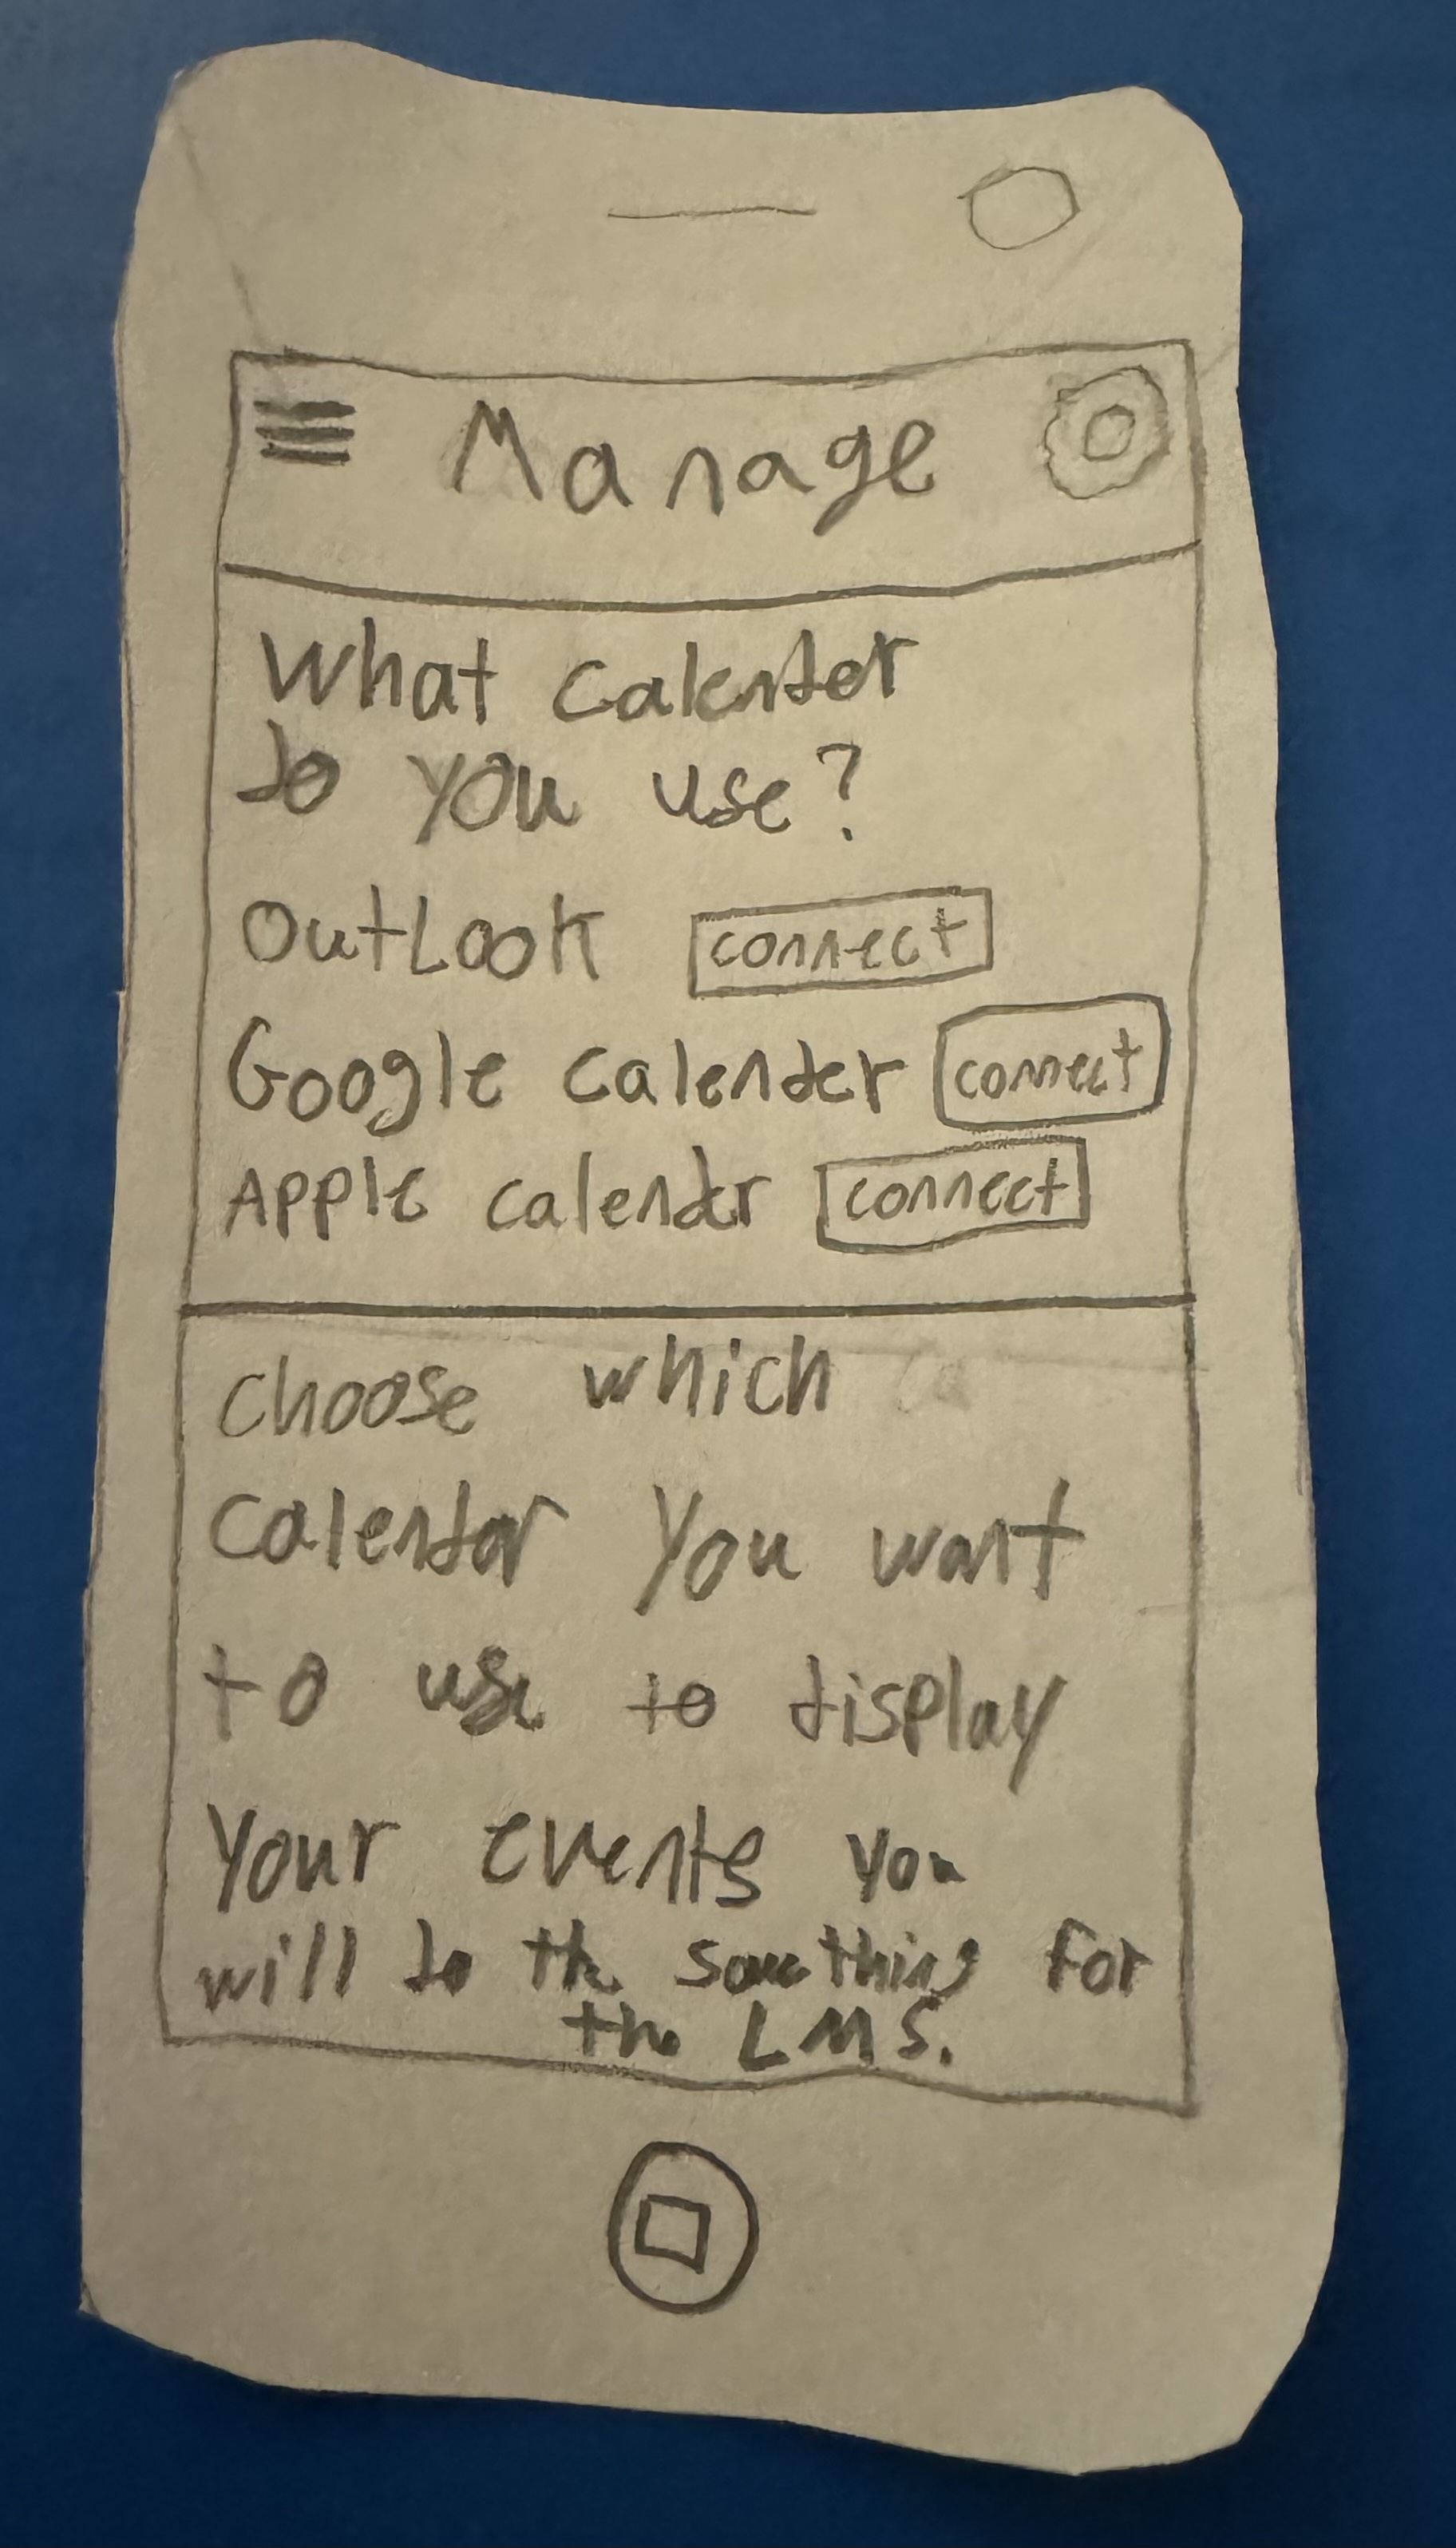 Manage
What calender
do you use?
OutLook connect
Google calender connect
Apple calendr connect
choose which
calendar you want
to use to display
Your events you
will do the something for
the LMS.